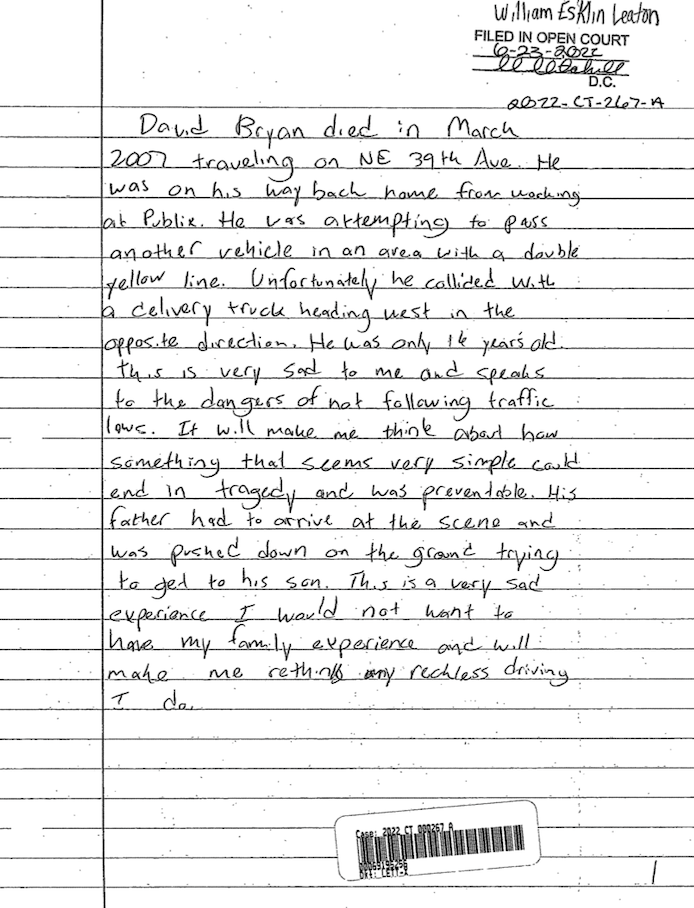 William Esklin Leaton
FILED IN OPEN COURT
6-23-2022
D.C.
2022-CT-267-A
David Bryan died in March
2007 traveling on NE 39th Ave. He
was on his way back home from working
at Publix. He was attempting to pass
another vehicle in an area with a double
yellow line. Unfortunately he collided with
a delivery truck heading west in the
opposite direction. He was only 16 year's old.
this is very sad to me and speaks
to the dangers of not following traffic
laws. It will make me think about how
something that seems very simple could
end in tragedy and was preventable. His
father had to arrive at the scene and
was pushed down on the ground trying
to get to his son. This is a very sad
experience I would not want to
have my family experience and will
make me rethink any reckless driving
I do.
Case: 2022 CT 000267 A
Dkt: LETT-A
1